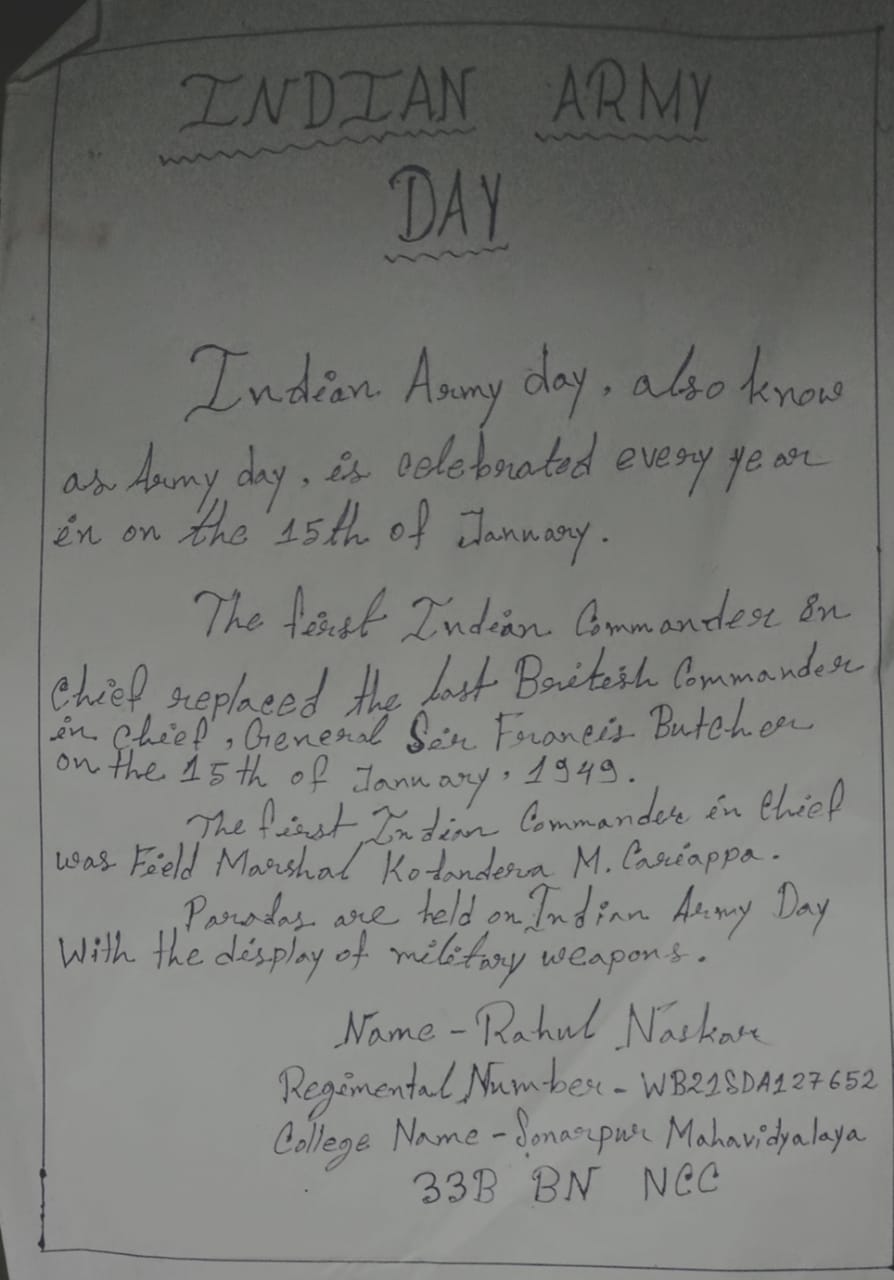 INDIAN ARMY
DAY
Indian Army day, also know
as Army day, is celebrated every year
in on the 15th of January.
The first Indian Commander in
Chief replaced the last British Commander
in Chief, General Sir Francis Butcher
on the 15th of January, 1949.
The first Indian Commander in Chief
was Field Marshal Kodandera M. Cariappa.
Parades are held on Indian Army Day
With the display of military weapons.
Name - Rahul Naskar
Regimental Number - WB21SDA127652
College Name - Sonarpur Mahavidyalaya
33B BN NCC